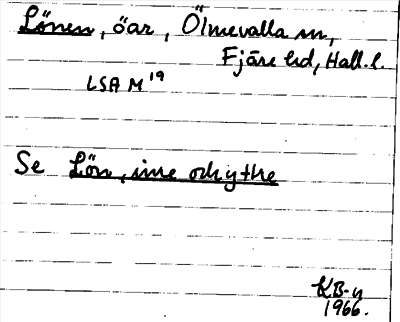 Lönen, öar, Ölmevalla sn,
Fjäre hd, Hall. l.
LSA M 19
Se Lön, inre och yttre
KB-y
1966.